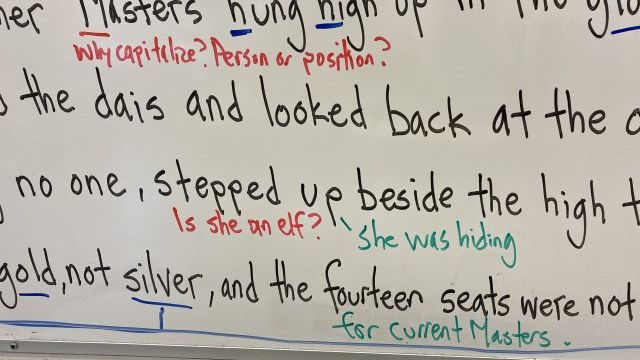 Masters hung high up in the
Why capitalize? Person or position?
the dais and looked back at the
no one, stepped up beside the high
Is she an elf?
She was hiding
gold, not silver, and the fourteen seats were not
for current Masters.